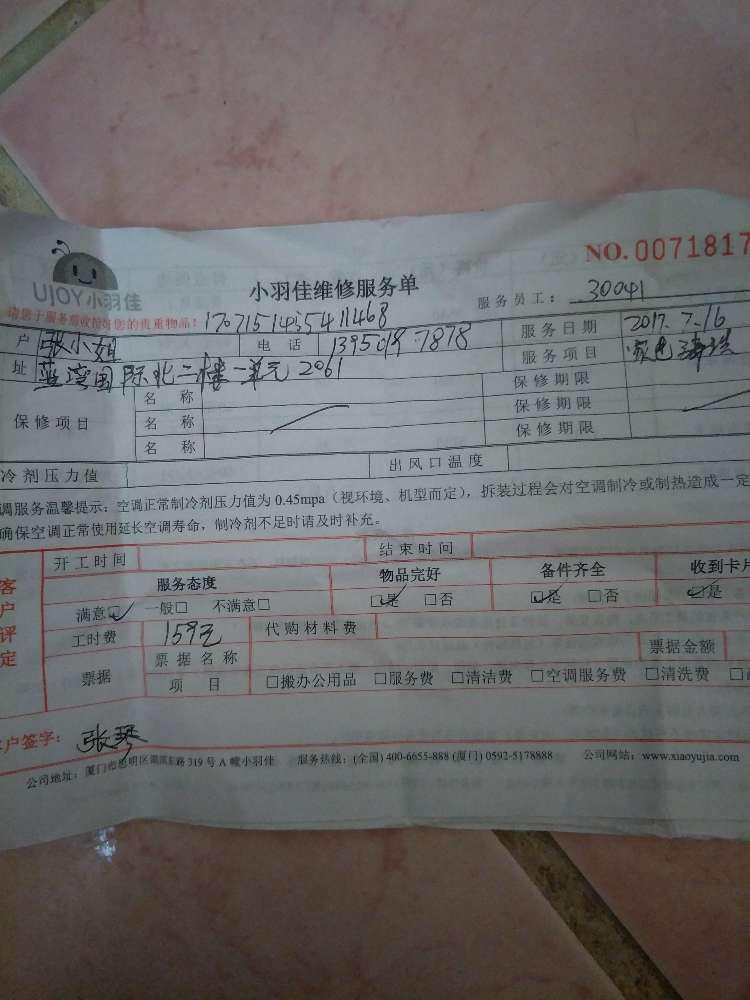 NO. 0071817
UJOY小羽佳
小羽佳维修服务单
服务员工： 30041
请您于服务前收拾好您的贵重物品！
户 张小姐 电 话 服务日期 2017.7.16
址 蓝湾国际北二楼一单元2061 服务项目 家电清洗
保修项目
名 称 保修期限
名 称 保修期限
名 称 保修期限
冷剂压力值 出风口温度
调服务温馨提示：空调正常制冷剂压力值为 0.45mpa（视环境、机型而定），拆装过程会对空调制冷或制热造成一定
确保空调正常使用延长空调寿命，制冷剂不足时请及时补充。
客户评定
开工时间 结束时间
服务态度 物品完好 备件齐全 收到卡片
满意☑ 一般□ 不满意□ ☑是 □否 ☑是 □否 ☑是
工时费 159元 代购材料费
票据 票据名称 票据金额
项 目 □搬办公用品 □服务费 □清洁费 □空调服务费 □清洗费
户签字： 张琴
公司地址：厦门市思明区湖滨东路 319 号 A 幢小羽佳 服务热线：(全国) 400-6655-888 (厦门) 0592-5178888 公司网站：www.xiaoyujia.com